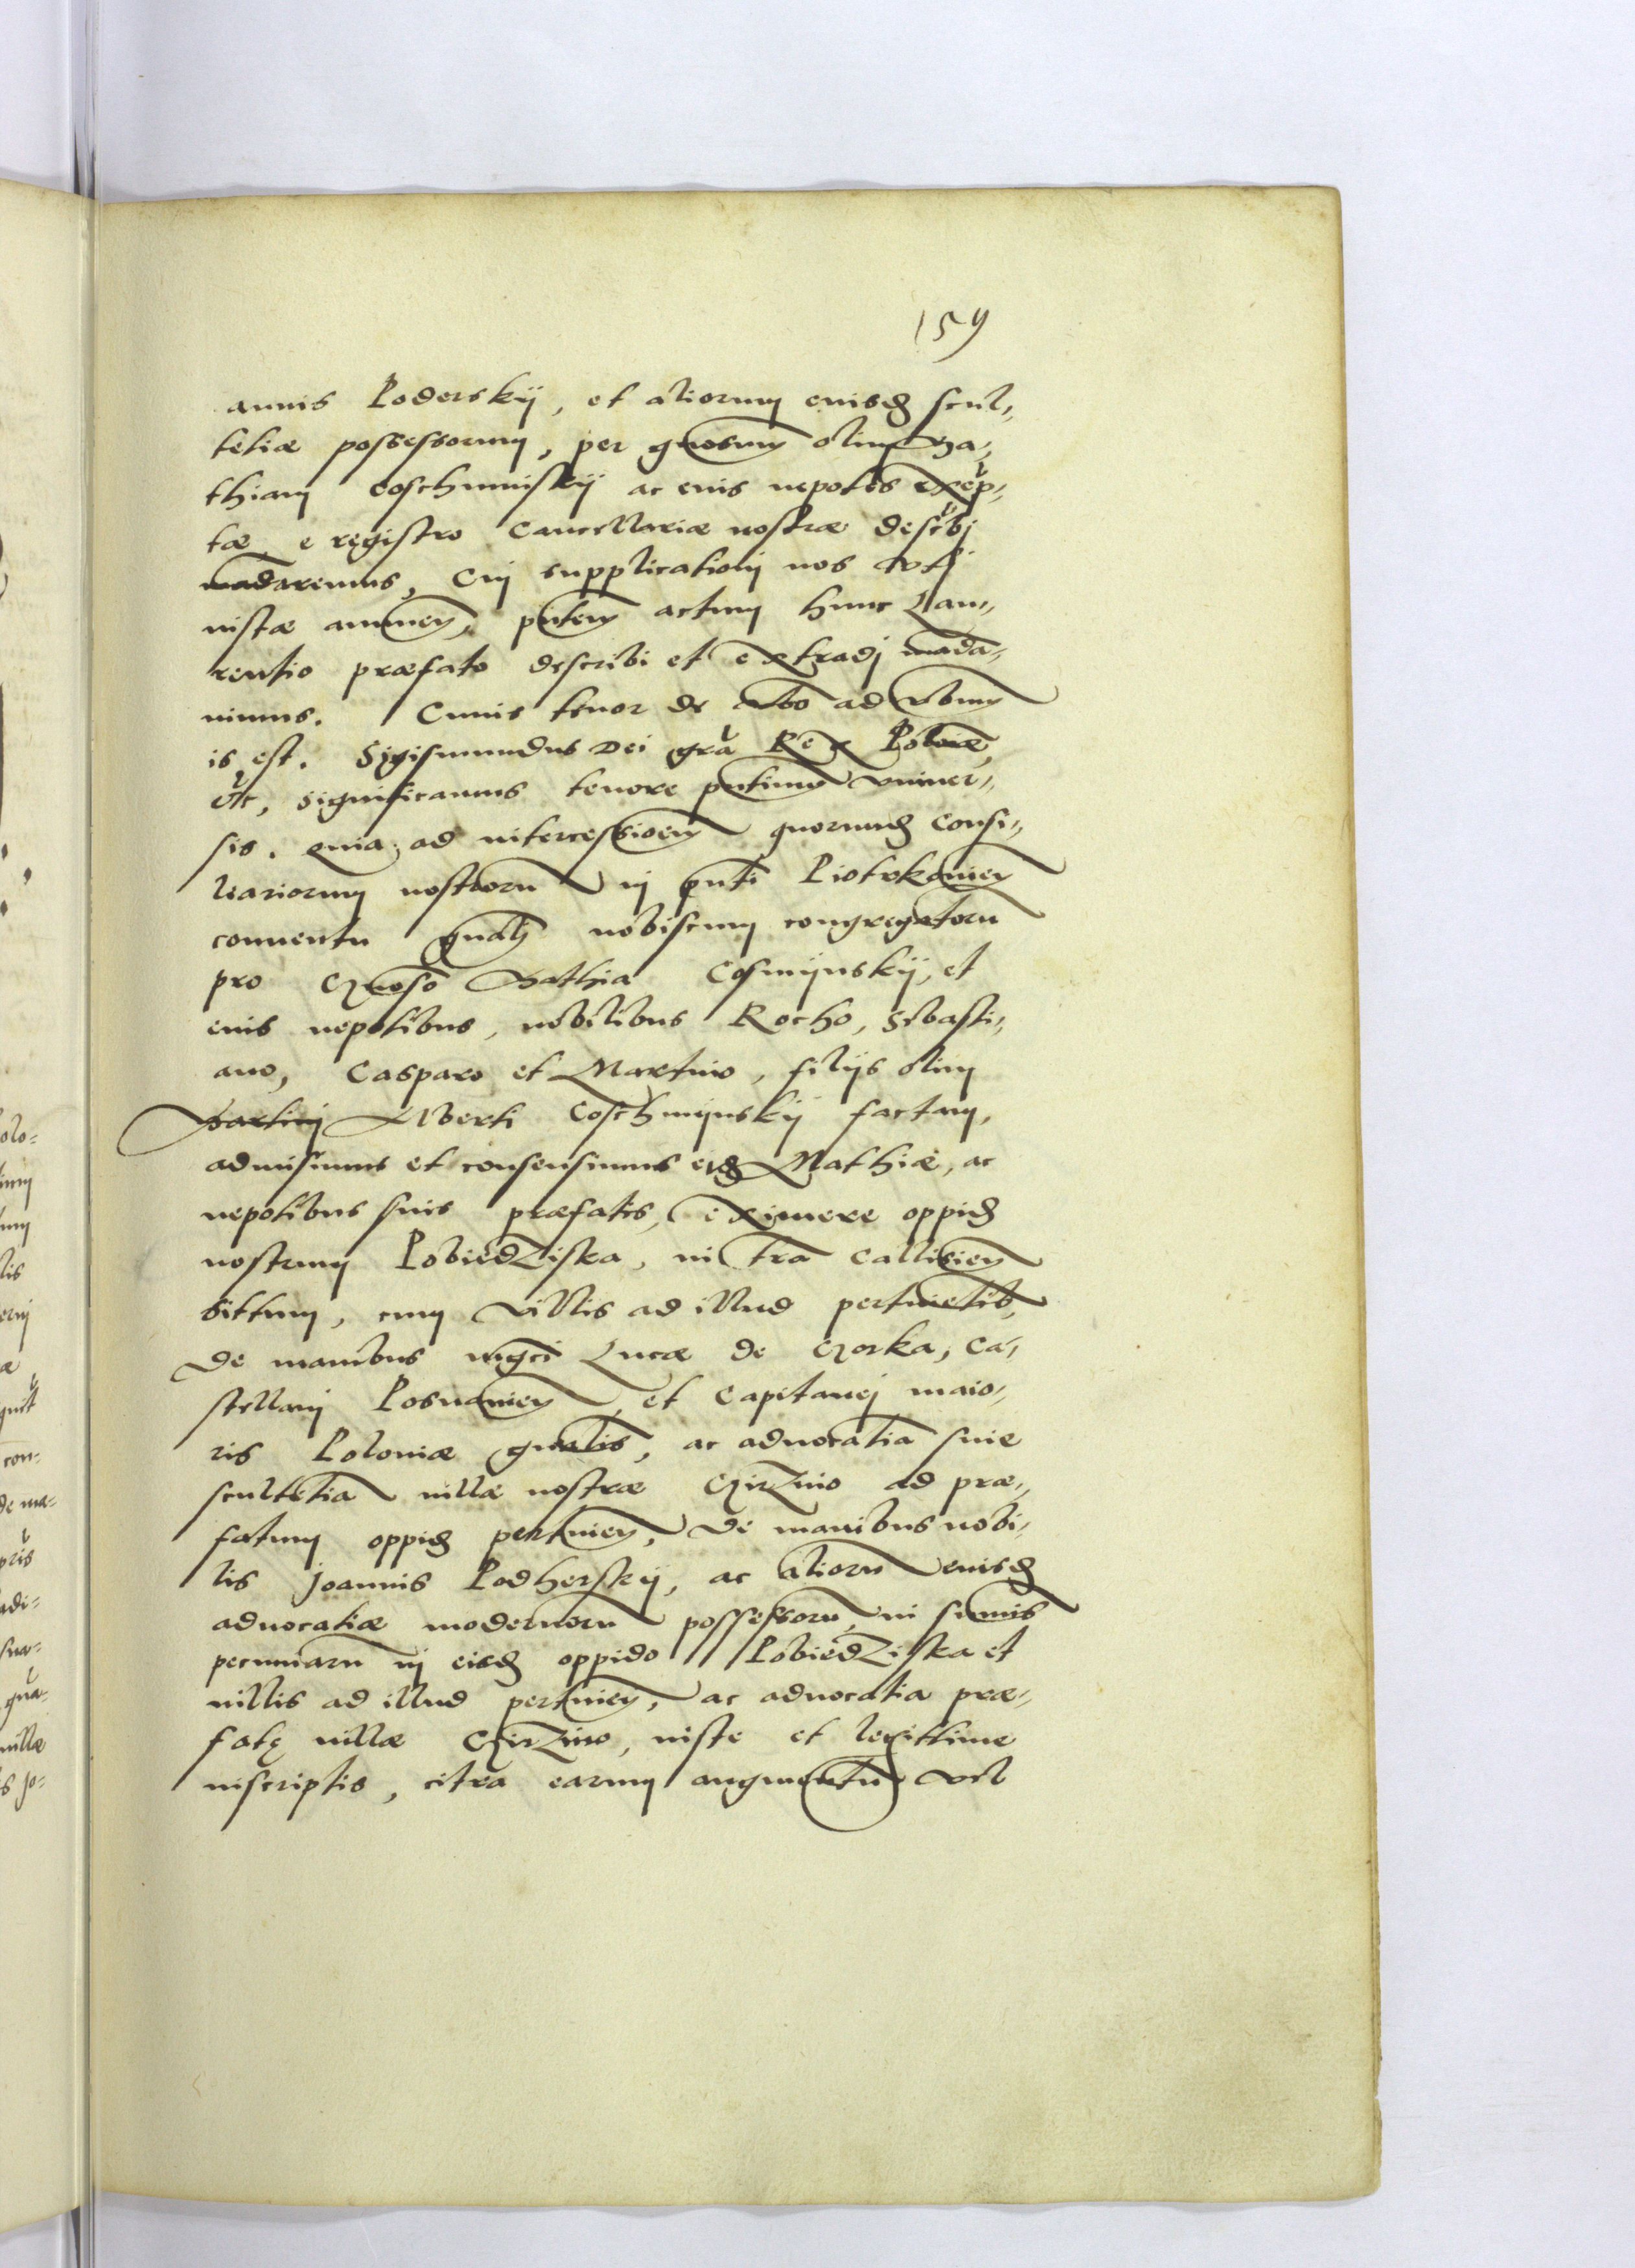 159
annis Poderskij, et aliorum euisd scul„
tetiæ possessorum, per gnosum olim Ma„
thiam Coschminskij ac euis nepotes exep„
tæ, e registro Cancellariæ nostræ describi
madaremus, Cuj supplicationj nos
nistæ annuen, pntem actum hunc Lau„
rentio præfato describi et extradj mada„
uimus. Cuius tenor de vbo ad vbum
is est. Sigismundus Dei gra Rex Poloniæ,
etc, Significamus tenore pntium vniuer„
sis. quia ad intercessioem quorund Consi„
liariorum nostrorum in pnti Piotrkouien
conuentu gnali nobiscum congregatoru
pro Gnoso Mathia Cosmijnskij, et
euis nepotibus, nobilibus Rocho, Sebasti„
ano, Casparo et Martino, filijs olim
Martinj Alberti Coschmijnskij factam,
admisimus et consensimus eid Mathiæ, ac
nepotibus suis præfatis, eximere oppid
nostrum Pobiedziska, in tra Callisien
sittum, cum villis ad illud pertinetib,
de manibus mgci Lucæ de Gorka, Ca„
stellanj Posnanien, et Capitanej maio„
ris Poloniæ gnalis, ac aduocatia siue
scultetia villæ nostræ Girzino ad præ„
fatum oppid pertinen, de manibus nobi„
lis Joannis Podherskij, ac alioru euisd
aduocatiæ modernoru possessoru, in sumis
pecuniaru in eisd oppido Pobiedziska et
villis ad illud pertinen, ac aduocatia præ„
fatę villæ Girzino, iuste et legittime
inscriptis, citra earum augmentu vel